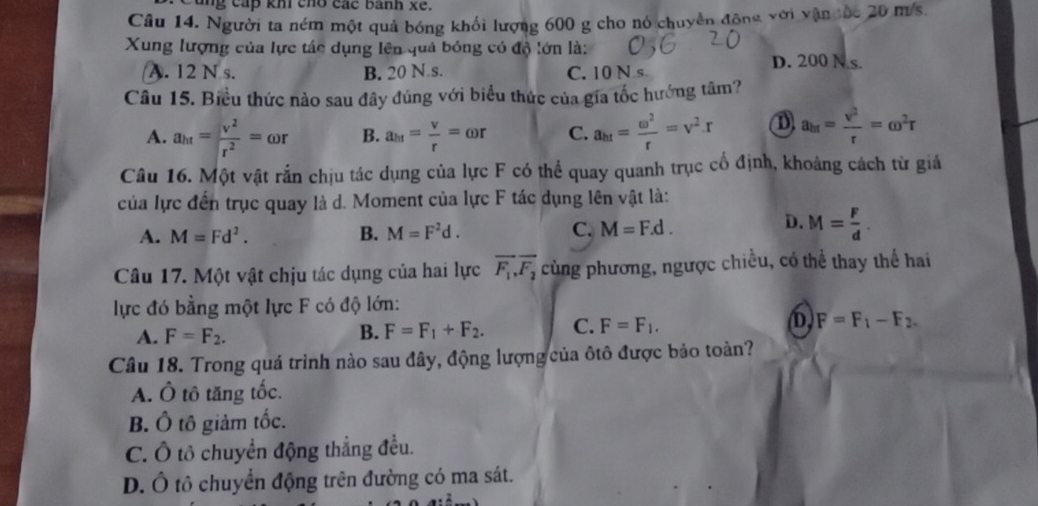 cấp khi cho các bánh xe.
Câu 14. Người ta ném một quả bóng khối lượng 600 g cho nó chuyển động với vận tốc 20 m/s.
Xung lượng của lực tác dụng lên quả bóng có độ lớn là: 0,6 20
A. 12 N.s. B. 20 N.s. C. 10 N.s. D. 200 N.s.
Câu 15. Biểu thức nào sau đây đúng với biểu thức của gia tốc hướng tâm?
A. aht = v²/r² = ωr B. aht = v/r = ωr C. aht = ω²/r = v².r D. aht = v²/r = ω²r
Câu 16. Một vật rắn chịu tác dụng của lực F có thể quay quanh trục cố định, khoảng cách từ giá
của lực đến trục quay là d. Moment của lực F tác dụng lên vật là:
A. M = Fd². B. M = F²d. C. M = F.d. D. M = F/d.
Câu 17. Một vật chịu tác dụng của hai lực F₁,F₂ cùng phương, ngược chiều, có thể thay thế hai
lực đó bằng một lực F có độ lớn:
A. F = F₂. B. F = F₁ + F₂. C. F = F₁. D. F = F₁ − F₂.
Câu 18. Trong quá trình nào sau đây, động lượng của ôtô được bảo toàn?
A. Ô tô tăng tốc.
B. Ô tô giảm tốc.
C. Ô tô chuyển động thẳng đều.
D. Ô tô chuyển động trên đường có ma sát.